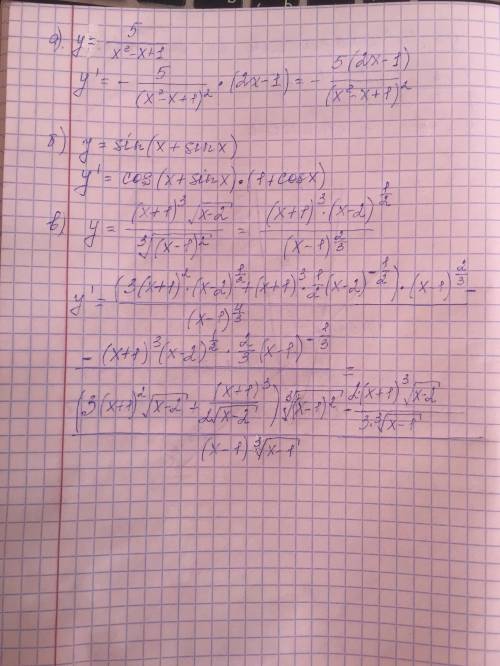 а). y = 5/(x²-x+1)
y' = - 5/(x²-x+1)² · (2x-1) = - 5(2x-1)/(x²-x+1)²
б) y = sin(x+sinx)
y' = cos(x+sinx)·(1+cosx)
в) y = (x+1)³ √(x-2) / ∛((x-1)²) = (x+1)³·(x-2)^(1/2) / (x-1)^(2/3)
y' = (3(x+1)²·(x-2)^(1/2) + (x+1)³·1/2 (x-2)^(-1/2))·(x-1)^(2/3) - / (x-1)^(4/3)
- (x+1)³(x-2)^(1/2) · 2/3 (x-1)^(-1/3) =
(3(x+1)²√(x-2) + (x+1)³/(2√(x-2))) ∛((x-1)²) - 2(x+1)³√(x-2)/(3·∛(x-1)) / (x-1)∛(x-1)